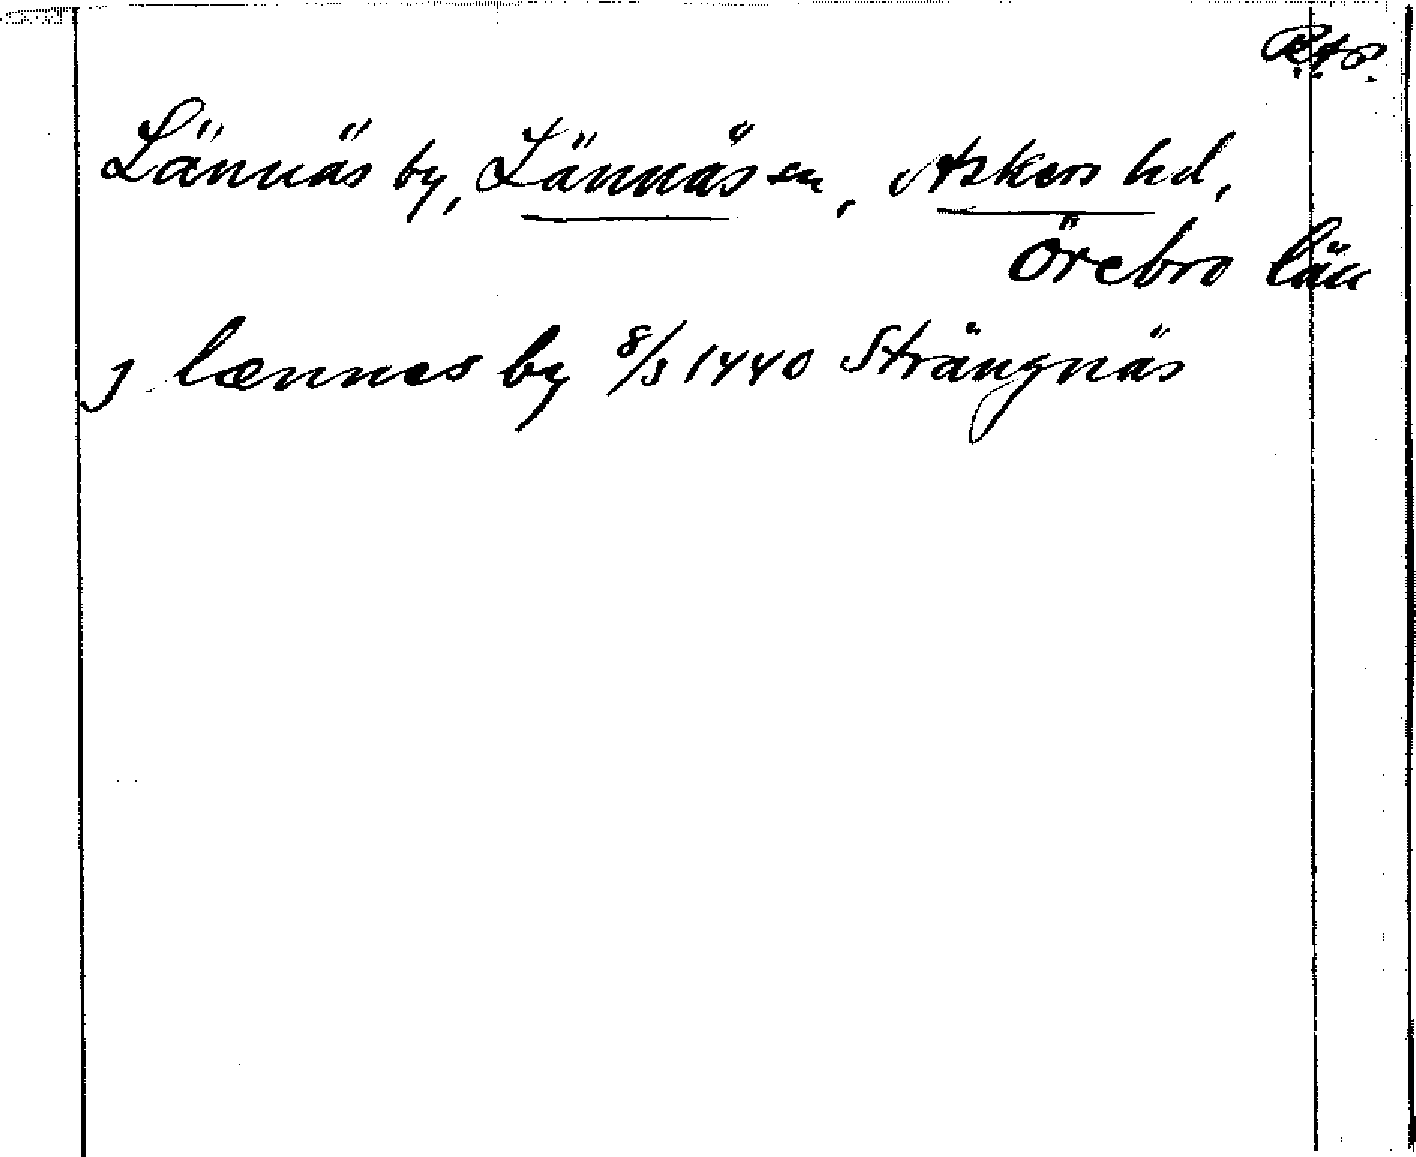 R.A.P.
Lännäs by, Lännäs sn, Askers hd,
Örebro län
j lænnes by 8/3 1440 Strängnäs